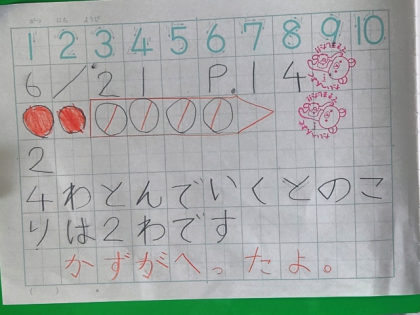 がつ にち ようび
1 2 3 4 5 6 7 8 9 10
6/21 P.14
2
4わとんでいくとのこ
りは2わです
かずがへったよ。